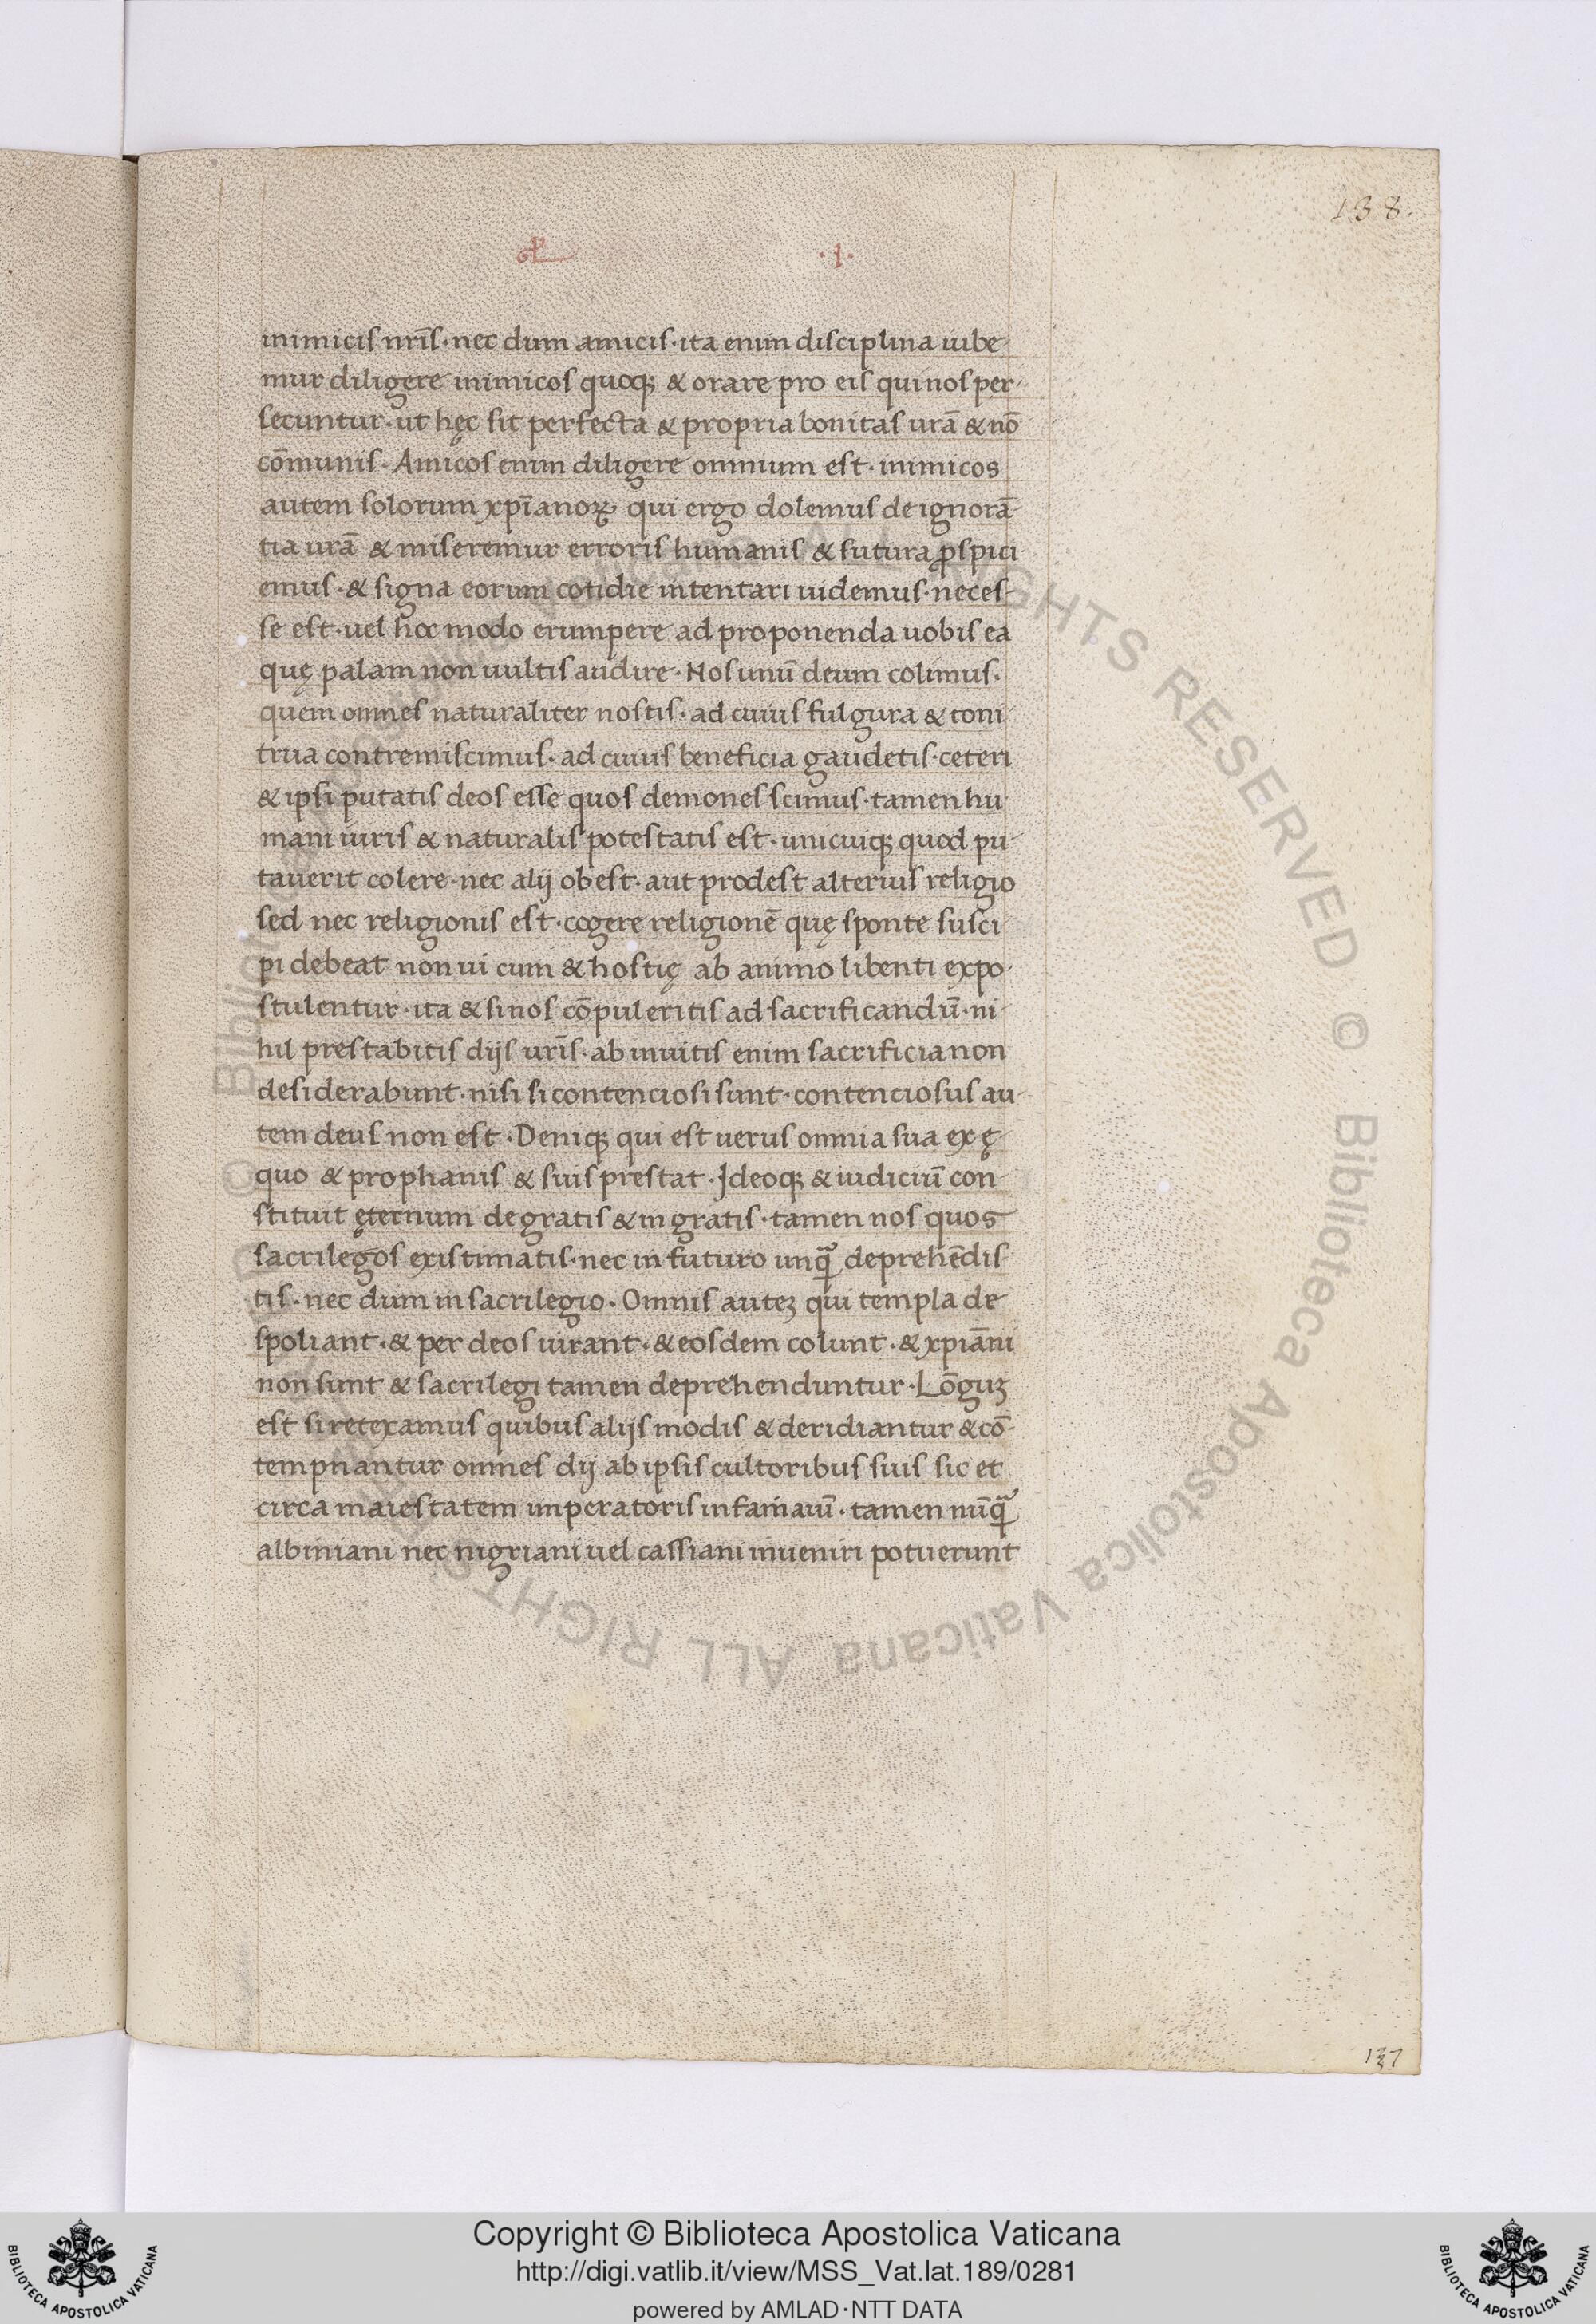 138.
.I.
inimicis nr̄is·nec dum amicis·ita enim disciplina iube
mur diligere inimicos quoqꝫ & orare pro eis qui nos per-
secuntur·ut hęc sit perfecta & propria bonitas urā & nō
cōmunis·Amicos enim diligere omnium est·inimicos
autem solorum xp̄ianoꝝ qui ergo dolemus de ignorā-
tia urā & miseremur erroris humanis & futura ꝓspici-
emus·& signa eorum cotidie intentari uidemus·neces-
se est·uel hoc modo erumpere ad proponenda uobis ea
quę palam non uultis audire·Nos unū deum colimus·
quem omnes naturaliter nostis·ad cuius fulgura & toni
trua contremiscimus·ad cuius beneficia gaudetis·ceteri
& ipsi putatis deos esse quos demones scimus·tamen hu
mani iuris & naturalis potestatis est·unicuiqꝫ quod pu-
tauerit colere·nec alij obest·aut prodest alterius religio
sed nec religionis est·cogere religionē quę sponte susci-
pi debeat non ui cum & hostię ab animo libenti expo-
stulentur·ita & si nos cōpuleritis ad sacrificandū·ni-
hil prestabitis dijs ur̄is·ab inuitis enim sacrificia non
desiderabunt·nisi si contenciosi sunt·contenciosus au-
tem deus non est·Deniqꝫ qui est uerus omnia sua ex ę-
quo & prophanis & suis prestat·Ideoqꝫ & iudiciū con-
stituit ęternum de gratis & ingratis·tamen nos quos
sacrilegos existimatis·nec in futuro unqᷓ deprehēdis
tis·nec dum in sacrilegio·Omnis auteꝫ qui templa de
spoliant·& per deos iurant·& eosdem colunt·& xpiāni
non sunt & sacrilegi tamen deprehenduntur·Lōguꝫ
est si retexamus quibus alijs modis & deridiantur & cō-
tempnantur omnes dij ab ipsis cultoribus suis sic et
circa maiestatem imperatoris infamaiū·tamen nūqᷓ
albiniani nec nigriani uel cassiani inueniri potuerunt
137
Copyright © Biblioteca Apostolica Vaticana
http://digi.vatlib.it/view/MSS_Vat.lat.189/0281
powered by AMLAD·NTT DATA